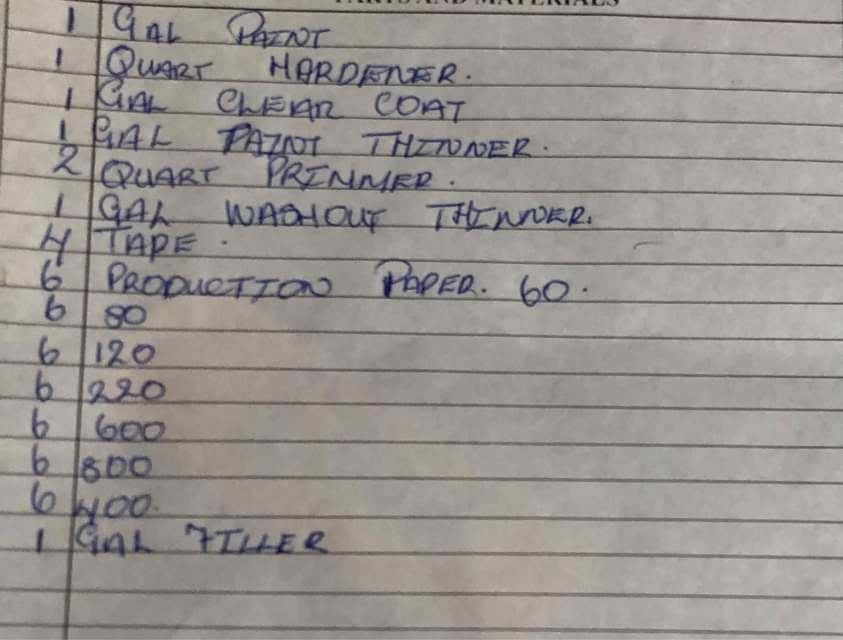 PARTS AND MATERIALS
1 GAL PAINT
1 QUART HARDENER.
1 GAL CLEAR COAT
1 GAL PAINT THINNER.
2 QUART PRIMMER.
1 GAL WASHOUT THINNER.
4 TAPE.
6 PRODUCTION PAPER. 60.
6 80
6 120
6 220
6 600
6 800
6 400.
1 GAL FILLER